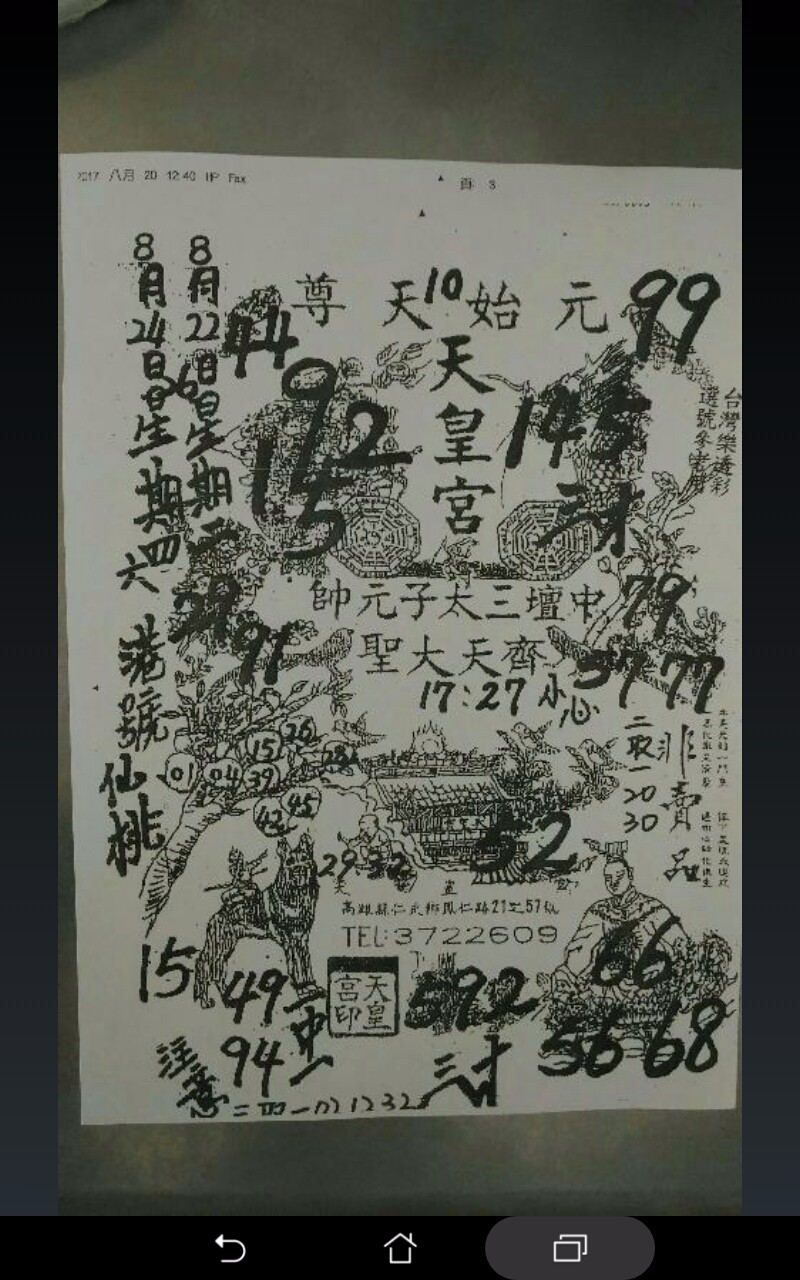 2017 八月 20 12:40 HP Fax
頁 3
8月24日星期四六
8月22日星期二
港號仙桃
44
尊 天 始 元
10
99
天皇宮
92
15
145
三才
台灣樂透彩
選號參考用
帥元子太三壇中
聖大天齊
17:27 小心
29
91
79
37 77
二取一
20
30
非賣品
26
15
28
01 04 39
42 45
29 32
52
天 皇 宮
高雄縣仁武鄉鳳仁路21之51號
TEL:3722609
15
49
94
二中一
宮天
印皇
592
三才
66
56 68
注意
二四一 02 12 32